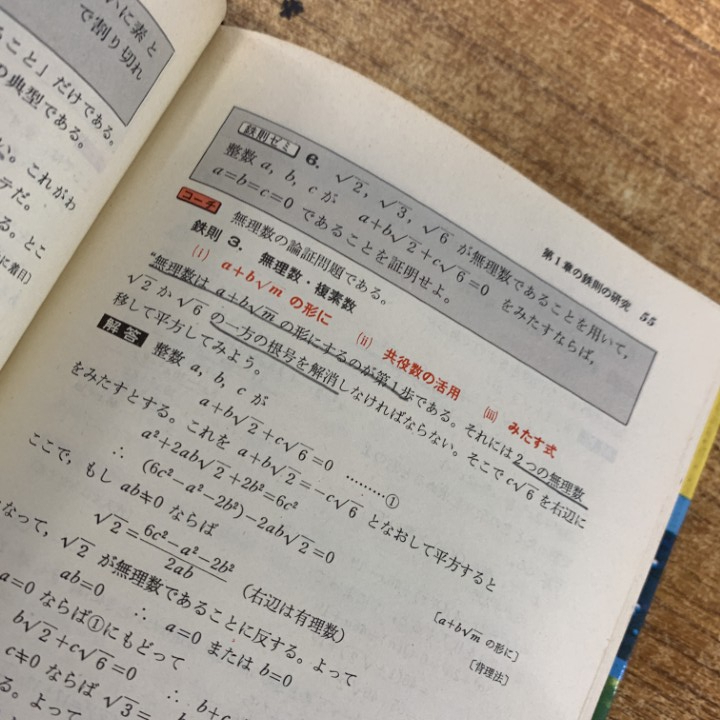 いに素と
で割り切れ
こと」だけである。
の典型である。
い。これがわ
テだ。
る。とこ
に着目)
第1章の鉄則の研究 55
鉄則ゼミ 6. √2, √3, √6 が無理数であることを用いて,
整数 a, b, c が a+b√2+c√6=0 をみたすならば,
a=b=c=0 であることを証明せよ。
コーチ 無理数の論証問題である。
鉄則 3. 無理数・複素数
(i) a+b√m の形に (ii) 共役数の活用 (iii) みたす式
“無理数は a+b√m の形にするのが第1歩である。それには2つの無理数
√2 か √6 の一方の根号を解消しなければならない。そこで c√6 を右辺に
移して平方してみよう。
解答 整数 a, b, c が
a+b√2+c√6=0 ………①
をみたすとする。これを a+b√2=-c√6 となおして平方すると
a²+2ab√2+2b²=6c²
∴ (6c²-a²-2b²)-2ab√2=0 [a+b√m の形に]
ここで, もし ab≠0 ならば
√2=6c²-a²-2b²/2ab (右辺は有理数) [背理法]
なって, √2 が無理数であることに反する。よって
ab=0 ∴ a=0 または b=0
a=0 ならば①にもどって
b√2+c√6=0 ∴ b+c
c≠0 ならば √3=
る。よって